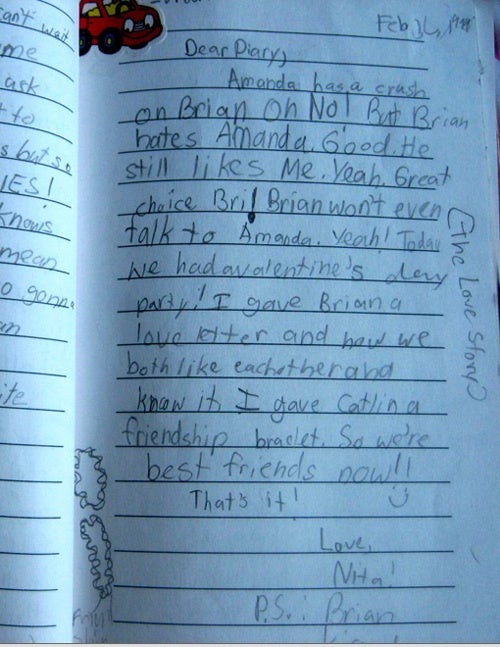 can't wait
me
ask
t to
s but so
IES!
knows
mean
o gonna
an
ite
Feb 14,
Dear Diary,
Amanda has a crush
on Brian Oh No! But Brian
hates Amanda. Good. He
still likes Me. Yeah. Great
choice Bri! Brian won't even
talk to Amanda. Yeah! Today
we had a valentine's day
party! I gave Brian a
love letter and now we
both like eachother and
know it. I gave Catlin a
friendship braclet. So we're
best friends now!!
That's it!
Love,
Nita!
P.S.: Brian
The Love Story